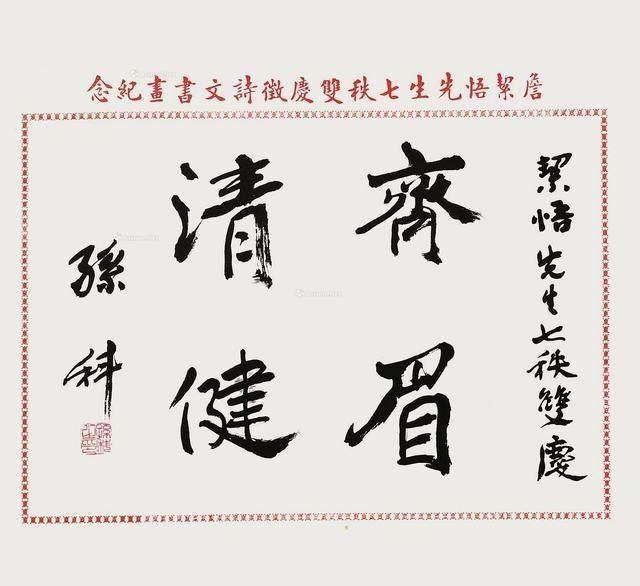 詹絜悟先生七秩雙慶徵詩文書畫紀念
絜悟先生七秩雙慶
齊眉
清健
孫科